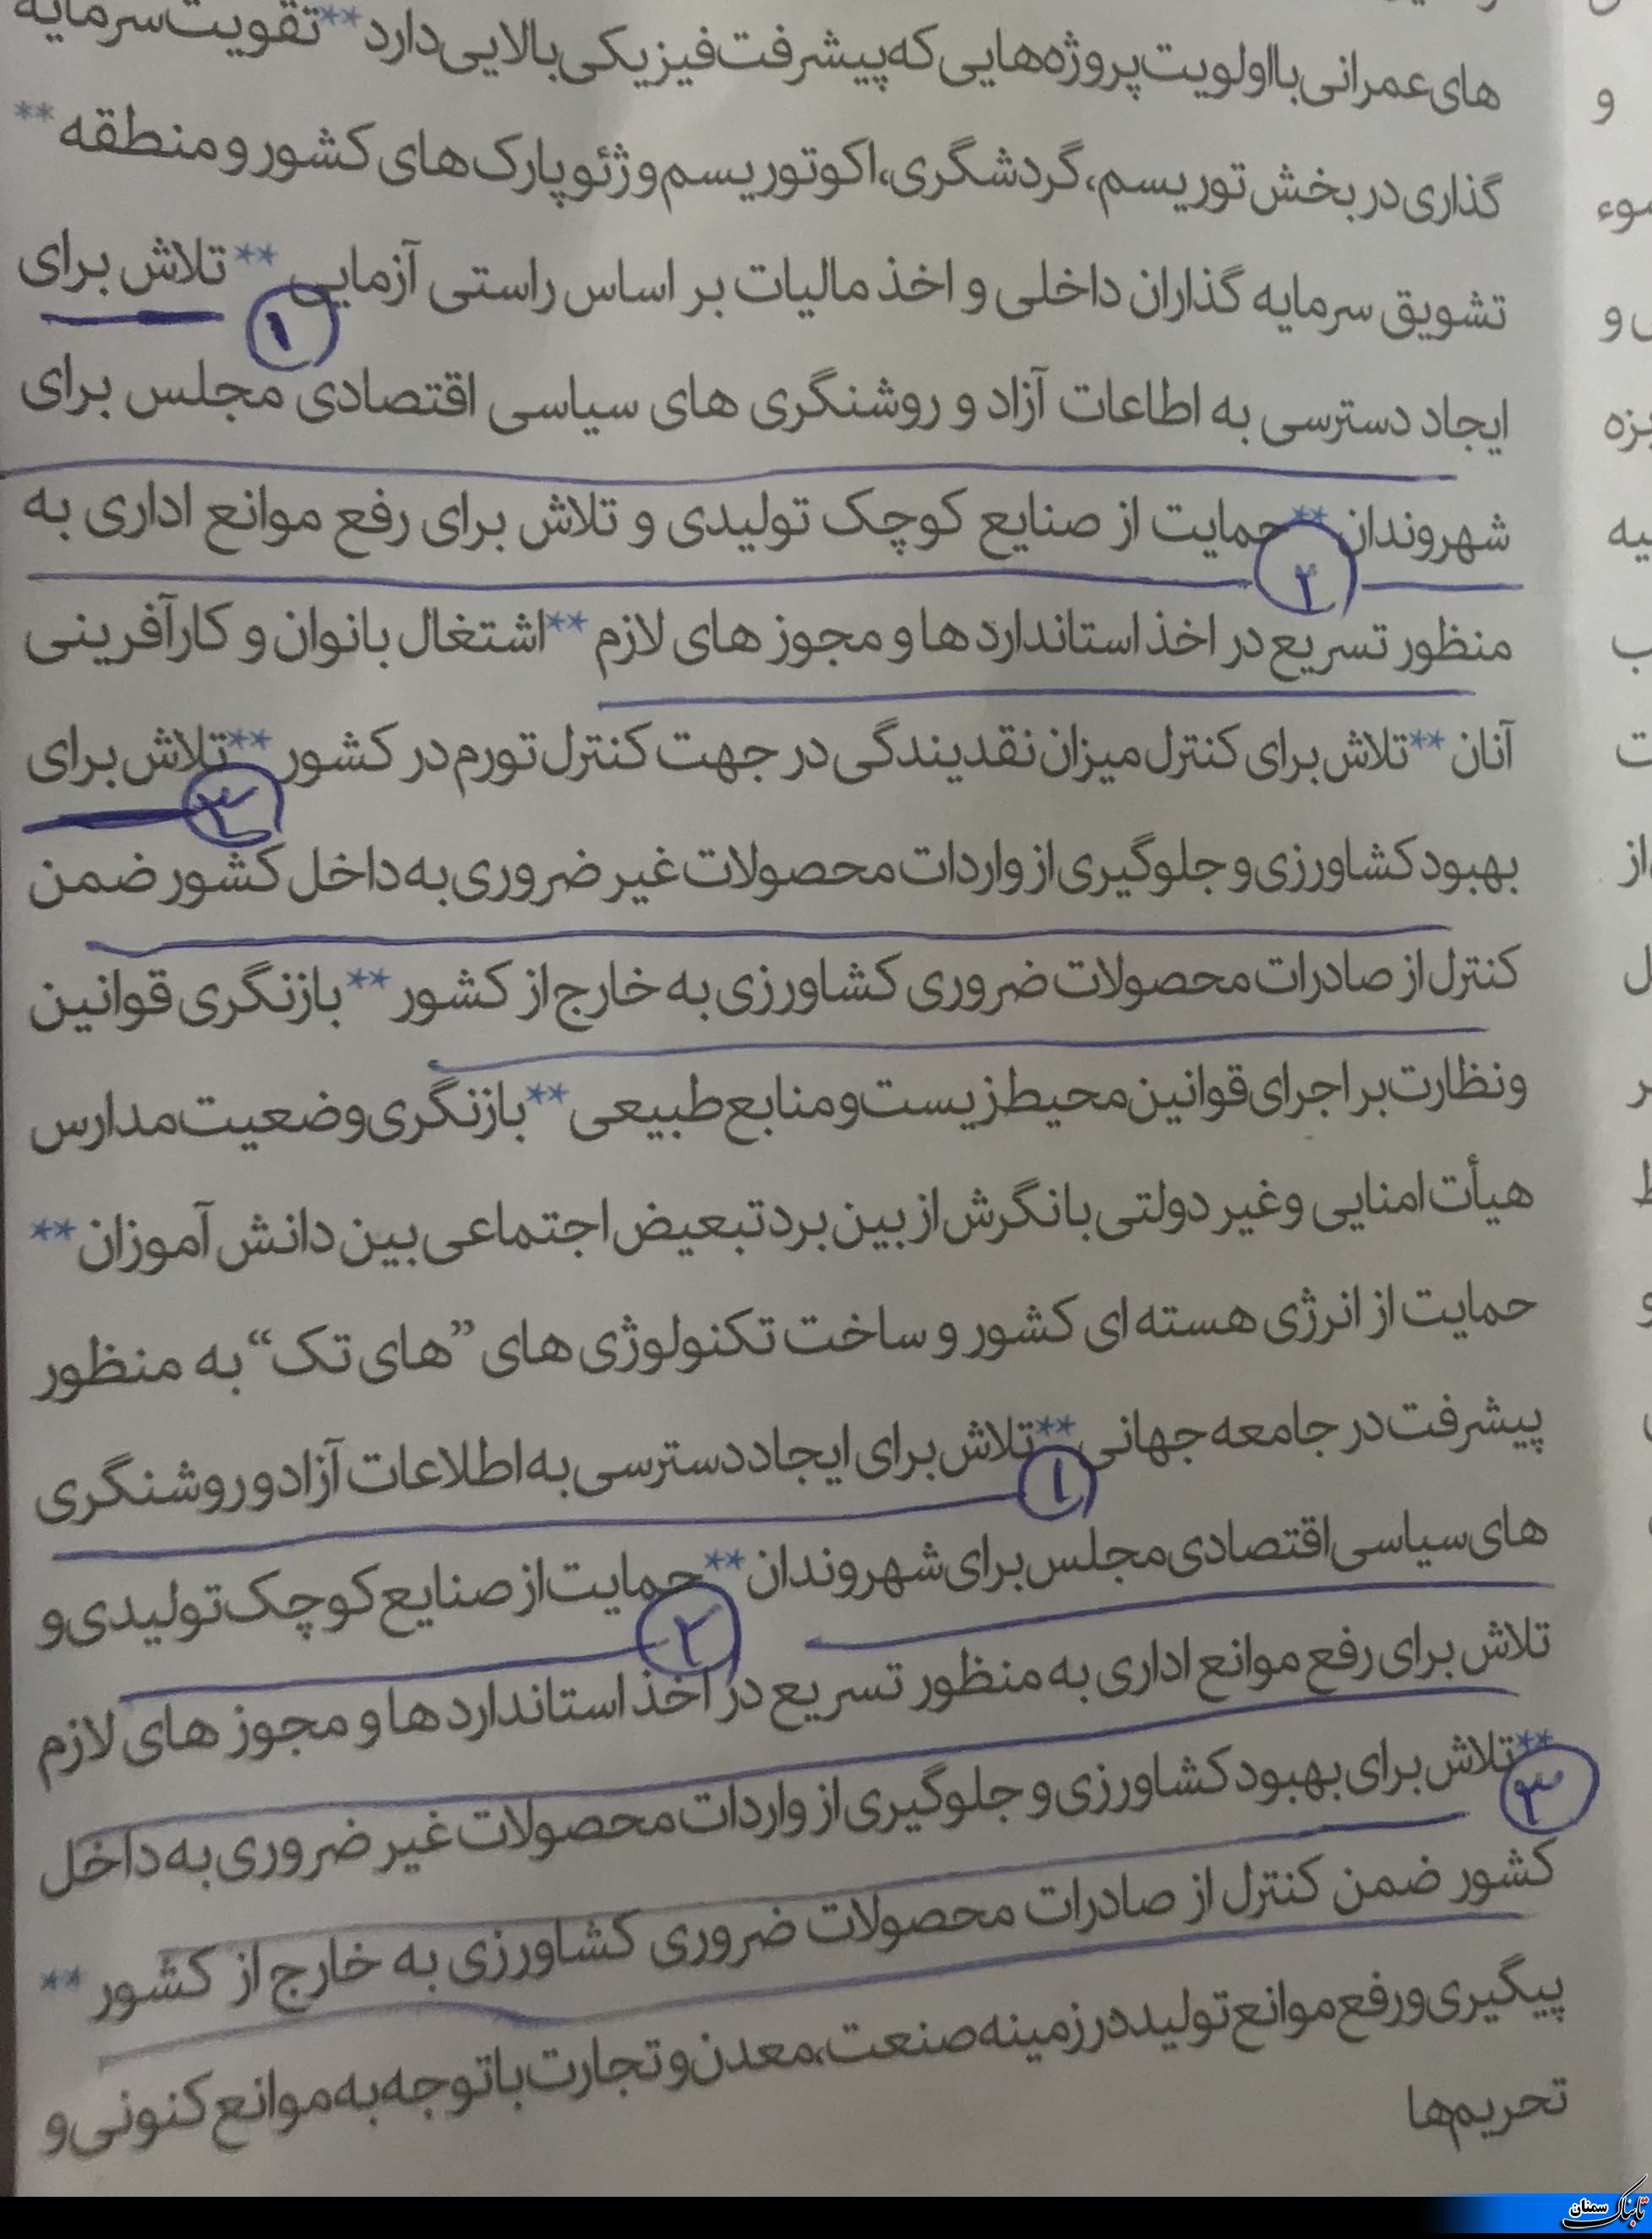 های عمرانی با اولویت پروژه‌هایی که پیشرفت فیزیکی بالایی دارد ** تقویت سرمایه
گذاری در بخش توریسم، گردشگری، اکوتوریسم و ژئوپارک های کشور و منطقه **
تشویق سرمایه گذاران داخلی و اخذ مالیات بر اساس راستی آزمایی ** تلاش برای
۱
ایجاد دسترسی به اطاعات آزاد و روشنگری های سیاسی اقتصادی مجلس برای
شهروندان ** حمایت از صنایع کوچک تولیدی و تلاش برای رفع موانع اداری به
۲
منظور تسریع در اخذ استانداردها و مجوز های لازم ** اشتغال بانوان و کارآفرینی
آنان ** تلاش برای کنترل میزان نقدیندگی در جهت کنترل تورم در کشور ** تلاش برای
۳
بهبود کشاورزی و جلوگیری از واردات محصولات غیر ضروری به داخل کشور ضمن
کنترل از صادرات محصولات ضروری کشاورزی به خارج از کشور ** بازنگری قوانین
و نظارت بر اجرای قوانین محیط زیست و منابع طبیعی ** بازنگری وضعیت مدارس
هیأت امنایی و غیر دولتی با نگرش از بین برد تبعیض اجتماعی بین دانش آموزان **
حمایت از انرژی هسته ای کشور و ساخت تکنولوژی های ”های تک“ به منظور
پیشرفت در جامعه جهانی ** تلاش برای ایجاد دسترسی به اطلاعات آزاد و روشنگری
۱
های سیاسی اقتصادی مجلس برای شهروندان ** حمایت از صنایع کوچک تولیدی و
۲
تلاش برای رفع موانع اداری به منظور تسریع در اخذ استانداردها و مجوز های لازم
** تلاش برای بهبود کشاورزی و جلوگیری از واردات محصولات غیر ضروری به داخل
۳
کشور ضمن کنترل از صادرات محصولات ضروری کشاورزی به خارج از کشور **
پیگیری و رفع موانع تولید در زمینه صنعت، معدن و تجارت با توجه به موانع کنونی و
تحریم‌ها
و
سوء
و
یزه
یه
ب
ت
از
ل
ر
ط
و
تابناک سمنان